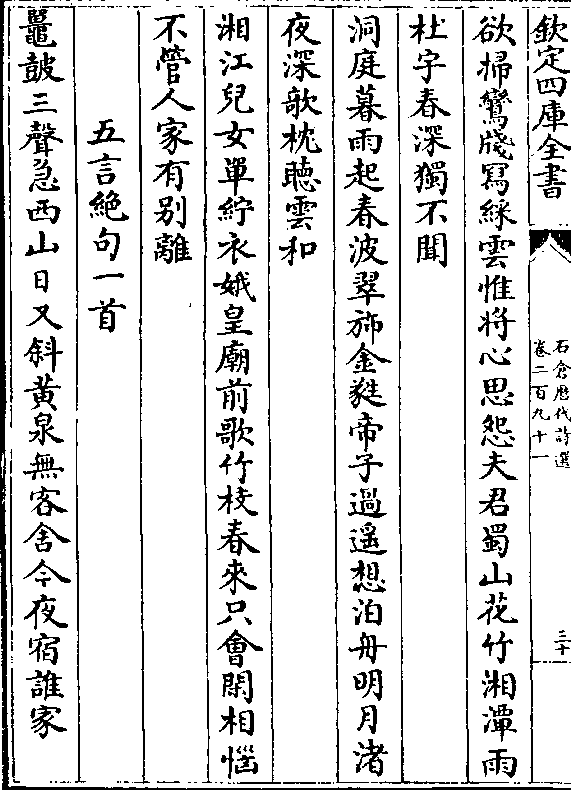 欽定四庫全書
石倉歷代詩選
卷二百九十一
三十
欲掃鸞牋寫綵雲惟將心思怨夫君蜀山花竹湘潭雨
杜宇春深獨不聞
洞庭暮雨起春波翠斾金蕤帝子過遥想泊舟明月渚
夜深歌枕聽雲和
湘江兒女單紵衣娥皇廟前歌竹枝春來只會閑相惱
不管人家有别離
五言絶句一首
鼉皷三聲急西山日又斜黄泉無客舍今夜宿誰家